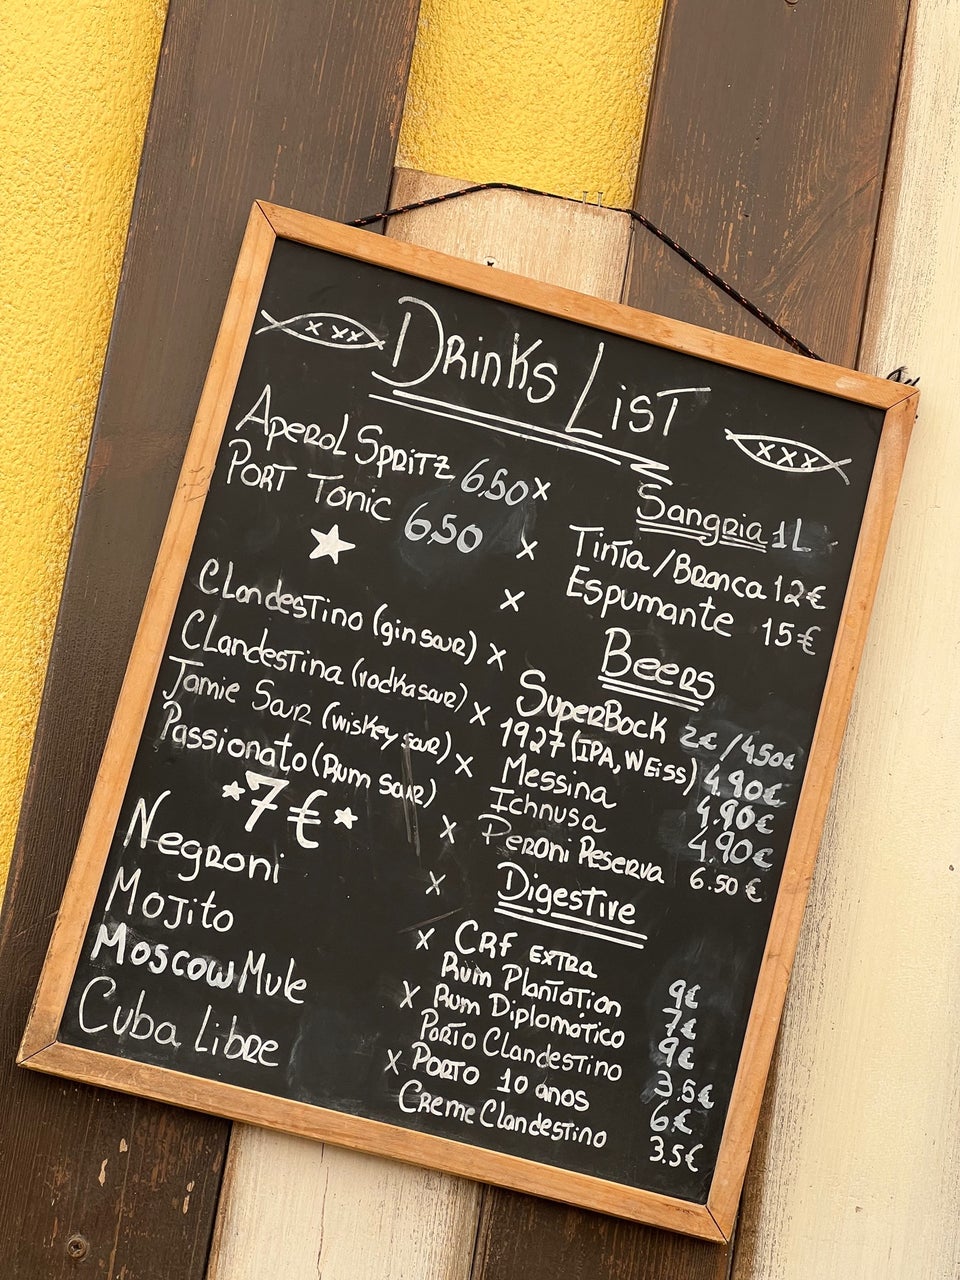 Drinks List
Aperol Spritz 6.50
Port Tonic 6,50
Clandestino (gin sour)
Clandestina (vodka sour)
Jamie Sour (wiskey sour)
Passionato (Rum sour)
*7€*
Negroni
Mojito
Moscow Mule
Cuba Libre
Sangria 1L
Tinta/Branca 12€
Espumante 15€
Beers
SuperBock 2€/4.50€
1927 (IPA, Weiss) 4.90€
Messina 4.90€
Ichnusa 4.90€
Peroni Reserva 6.50€
Digestive
CRF Extra 9€
Rum Plantation 7€
Rum Diplomático 9€
Porto Clandestino 3.5€
Porto 10 anos 6€
Creme Clandestino 3.5€